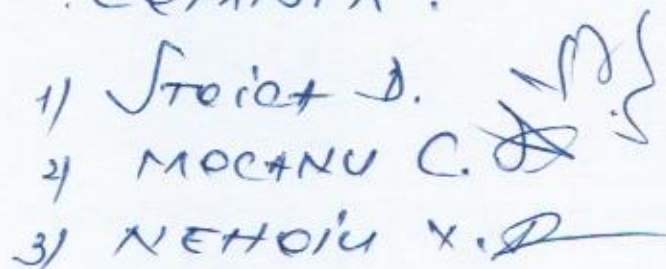 1) Stoica D.
2) MOCANU C.
3) NEHOIU X.